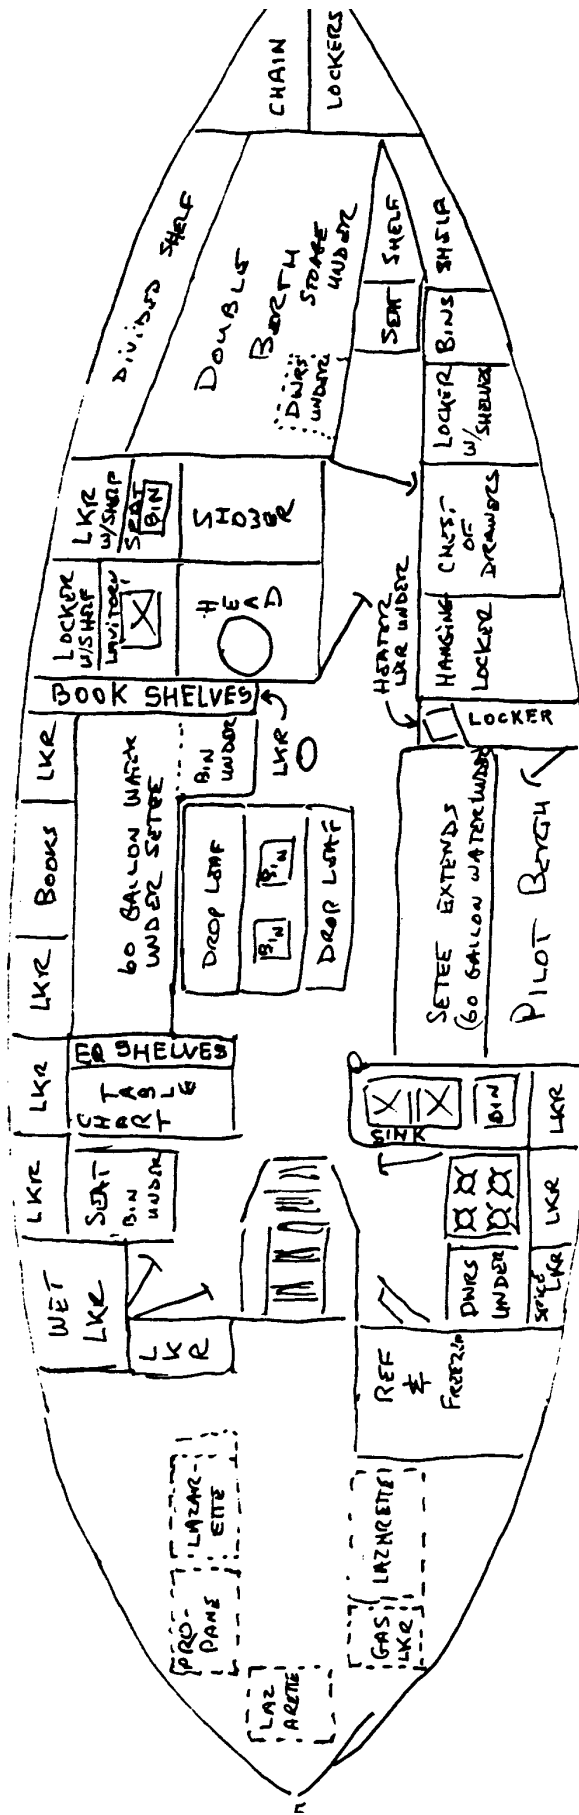 CHAIN
LOCKERS
DIVIDED SHELF
DOUBLE
BERTH
STORAGE
UNDER
DWRS
UNDER
SHELF
SEAT
SHELF
BINS
LOCKER
W/SHELVES
CHEST
OF
DRAWERS
HANGING
LOCKER
LKR
W/SHELF
SEAT
BIN
LOCKER
W/SHELF
LAVITORY
HEAD
HEATER
LKR UNDER
BOOK SHELVES
LOCKER
LKR
BOOKS
LKR
60 GALLON WATER
UNDER SETEE
BIN
UNDER
LKR
DROP LEAF
BIN
BIN
DROP LEAF
SETEE EXTENDS
(60 GALLON WATER UNDER
PILOT BERTH
EQ SHELVES
LKR
TABLE
CHART
SINK
BIN
LKR
LKR
SEAT
BIN
UNDER
LKR
DWRS
UNDER
SPICE
LKR
WET
LKR
LKR
REF
&
FREEZER
LAZAR-
ETTE
PRO-
PANE
LAZARETTE
GAS
LKR
LAZ
ARETTE